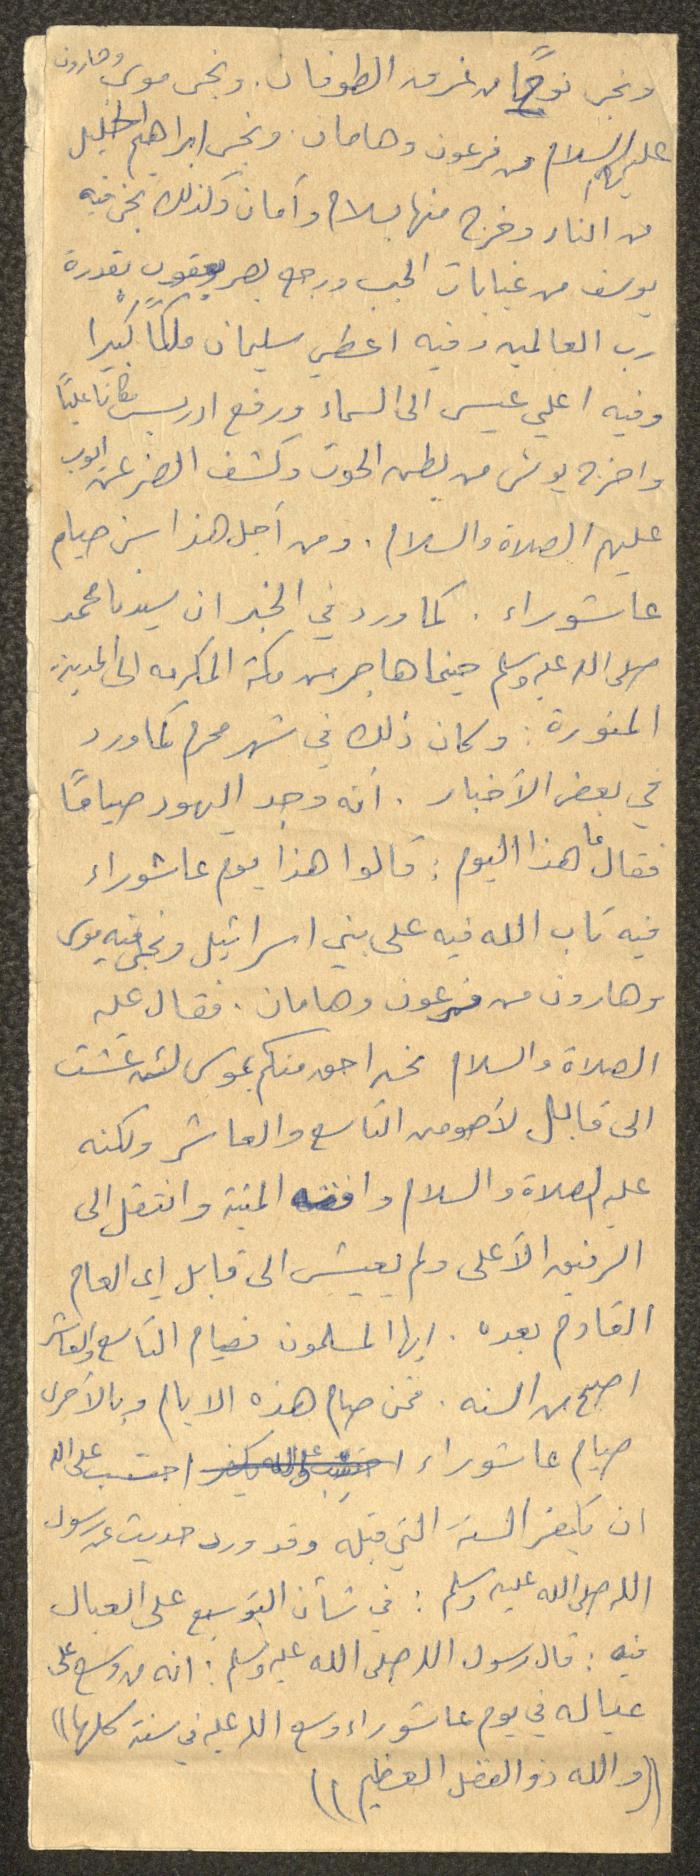 ونجى نوحًا من غرق الطوفان. ونجى موسى وهارون
عليهم السلام من فرعون وهامان. ونجى ابراهيم الخليل
من النار وخرج منها بسلام وأمان وكذلك نجى فيه
يوسف من غيابات الجب ورجع بصر يعقوب بقدرة
رب العالمين وفيه اعطي سليمان ملكًا كبيرا
وفيه اعلي عيسى الى السماء ورفع ادريس مكانا عليًا
واخرج يونس من بطن الحوت وكشف الضر عن ايوب
عليهم الصلاة والسلام. ومن أجل هذا سن صيام
عاشوراء. كما ورد في الخبر ان سيدنا محمد
صلى الله عليه وسلم حينما هاجر من مكة المكرمه الى المدينة
المنورة: وكان ذلك في شهر محرم كما ورد
في بعض الأخبار. أنه وجد اليهود صيامًا
فقال ما هذا اليوم: قالوا هذا يوم عاشوراء
فيه تاب الله فيه على بني اسرائيل ونجى فيه موسى
وهارون من فرعون وهامان. فقال عليه
الصلاة والسلام نحن احق منكم بموسى لئن عشت
الى قابل لأصومن التاسع والعاشر ولكنه
عليه الصلاة والسلام وافته المنية وانتقل الى
الرفيق الأعلى ولم يعيش الى قابل اى العام
القادم بعده. ايها المسلمون فصيام التاسع والعاشر
اصبح من السنه. فمن صام هذه الايام وبالأحرى
صيام عاشوراء احتسب على الله
ان يكفر السنة التي قبله وقد ورد حديث عن رسول
الله صلى الله عليه وسلم: في شأن التوسيع على العيال
فيه: قال رسول الله صلى الله عليه وسلم: انه من وسع على
عياله في يوم عاشوراء وسع الله عليه في سنته كلها))
((والله ذو الفضل العظيم))